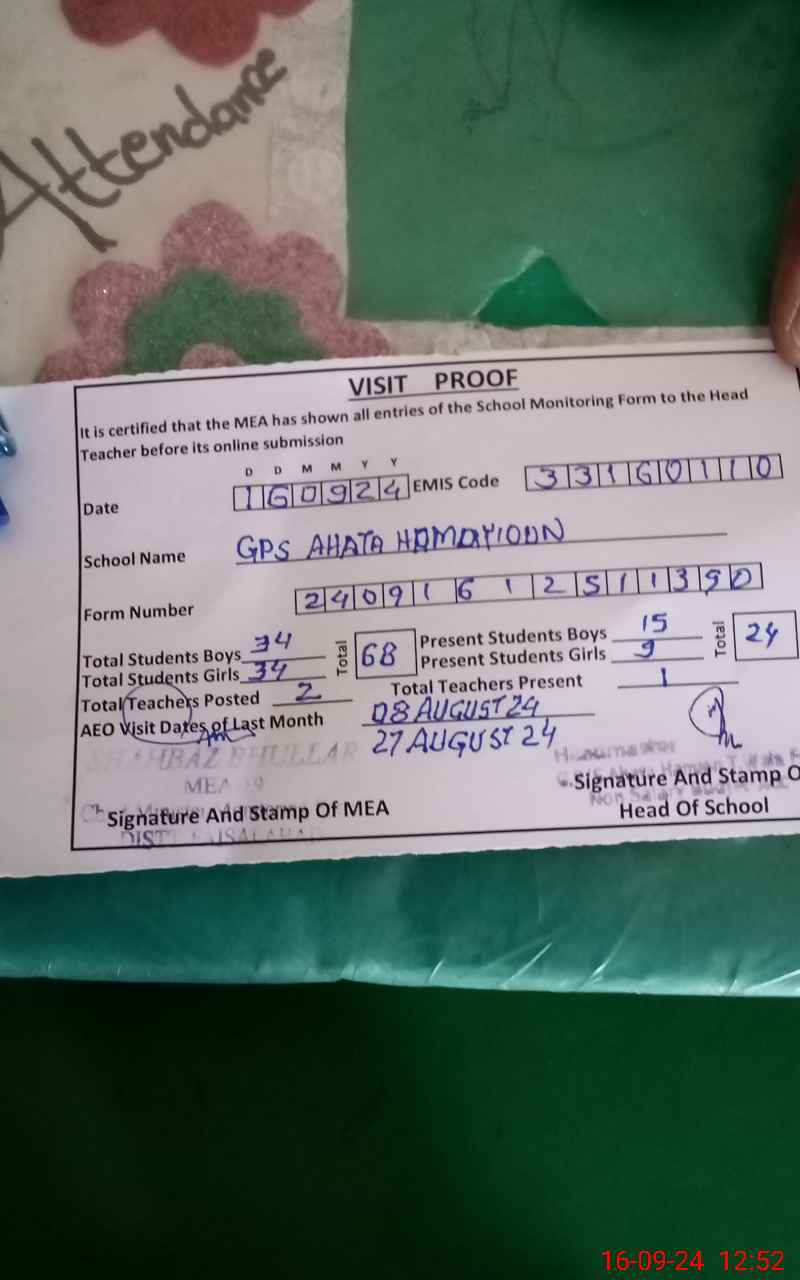 Attendance
VISIT PROOF
It is certified that the MEA has shown all entries of the School Monitoring Form to the Head
Teacher before its online submission
D D M M Y Y
Date 160924 EMIS Code 33160110
School Name GPS AHATA HOMAYIOON
Form Number 24091612511390
Total Students Boys 34 Total 68 Present Students Boys 15 Total 24
Total Students Girls 34 Present Students Girls 9
Total Teachers Posted 2 Total Teachers Present 1
AEO Visit Dates of Last Month 08 AUGUST 24
27 AUGUST 24
SHAHBAZ BHULLAR
MEA
Signature And Stamp Of MEA
DISTT FAISALABAD
Signature And Stamp O
Head Of School
16-09-24 12:52